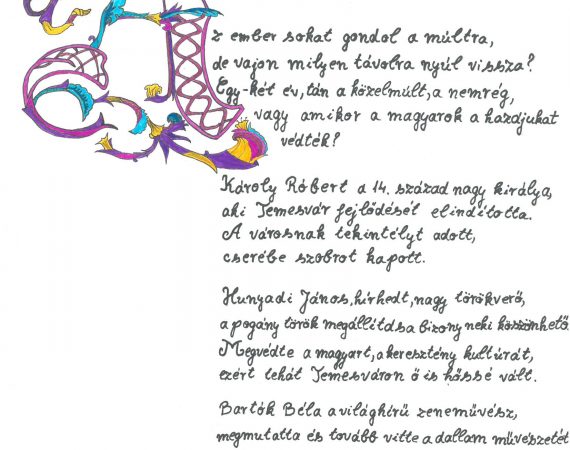 Az ember sokat gondol a múltra,
de vajon milyen távolra nyúl vissza?
Egy-két év, tán a közelmúlt, a nemrég,
vagy amikor a magyarok a hazájukat
védték?
Károly Róbert a 14. század nagy királya,
aki Temesvár fejlődését elindította.
A városnak tekintélyt adott,
cserébe szobrot kapott.
Hunyadi János, hírhedt, nagy törökverő,
a pogány török megállítása bizony neki köszönhető.
Megvédte a magyart, a keresztény kultúrát,
ezért tehát Temesváron ő is hőssé vált.
Bartók Béla a világhírű zeneművész,
megmutatta és tovább vitte a dallam művészetét